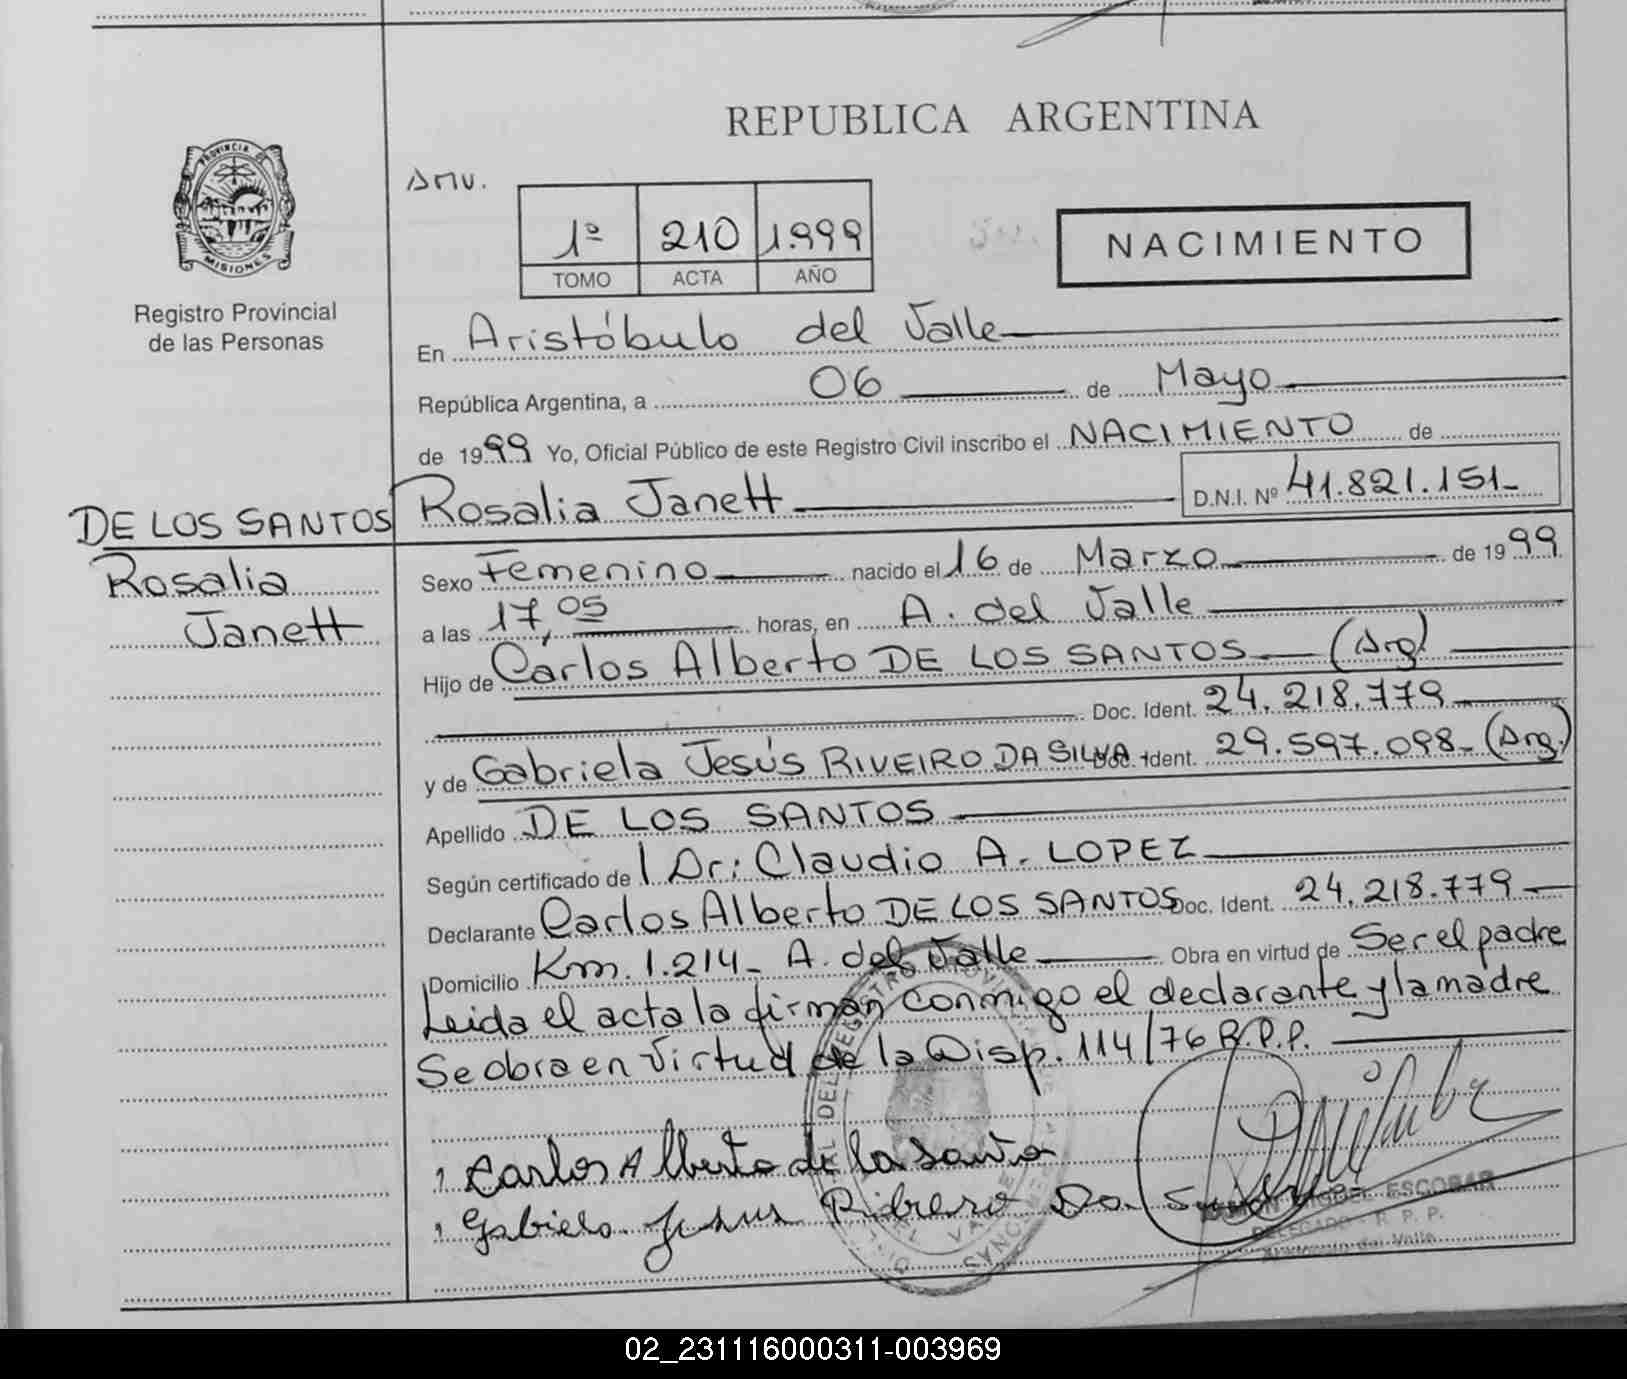 REPUBLICA ARGENTINA
PROVINCIA DE
MISIONES
Registro Provincial
de las Personas
1º 210 1.999
TOMO ACTA AÑO
NACIMIENTO
En Aristóbulo del Valle
República Argentina, a 06 de Mayo
de 1999 Yo, Oficial Público de este Registro Civil inscribo el NACIMIENTO de
DE LOS SANTOS Rosalia Janett D.N.I. Nº 41.821.151-
Rosalia
Janett
Sexo Femenino nacido el 16 de Marzo de 1999
a las 17,05 horas, en A. del Valle
Hijo de Carlos Alberto DE LOS SANTOS (Arg)
Doc. Ident. 24.218.779
y de Gabriela Jesús RIVEIRO DA SILVA Doc. Ident. 29.597.098- (Arg.)
Apellido DE LOS SANTOS
Según certificado de l Dr: Claudio A. LOPEZ
Declarante Carlos Alberto DE LOS SANTOS Doc. Ident. 24.218.779
Domicilio Km. 1.214- A. del Valle Obra en virtud de Ser el padre
Leida el acta la firman conmigo el declarante y la madre
Se obra en Virtud de la Disp. 114/76 R.P.P.
Carlos Alberto de la Santo
Gabiela Jesus Ribero Da
MIGUEL ESCOBAR
DELEGADO - R. P. P.
del Valle
02_231116000311-003969